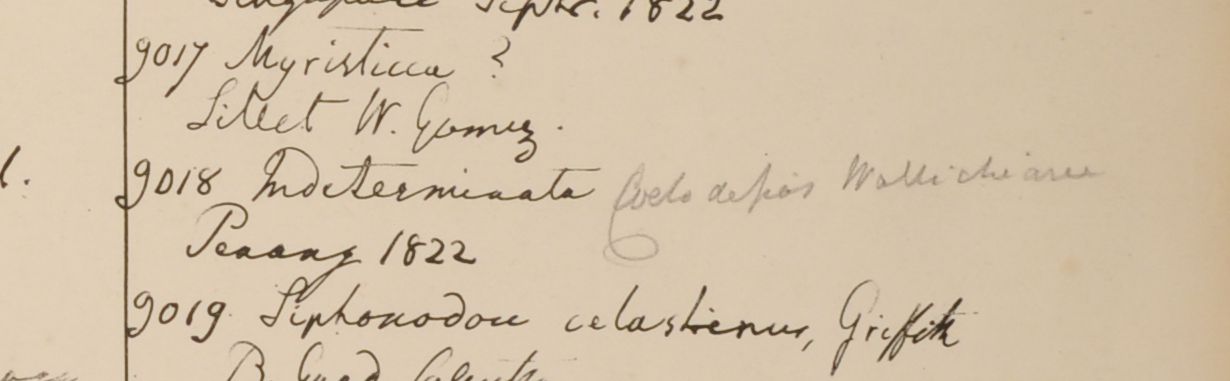 Singapore Septr. 1822
9017 Myristicea ?
Sillet W. Gomez.
9018 Indeterminata Coelodepas Wallichiana
Penang 1822
9019 Siphonodon celastrinus, Griffith